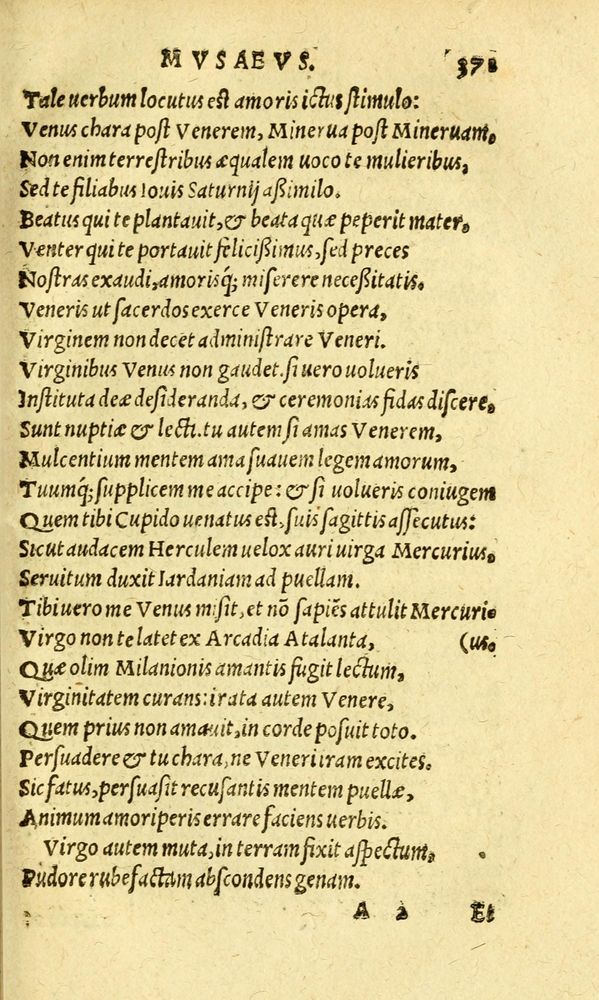 MVSAEVS. 371
Tale uerbum locutus est amoris ictus stimulo:
Venus chara post Venerem, Minerua post Mineruam,
Non enim terrestribus æqualem uoco te mulieribus,
Sed te filiabus Iouis Saturnij aßimilo.
Beatus qui te plantauit, & beata quæ peperit mater,
Venter qui te portauit felicißimus, sed preces
Nostras exaudi, amorisq; miserere neceßitatis.
Veneris ut sacerdos exerce Veneris opera,
Virginem non decet administrare Veneri.
Virginibus Venus non gaudet. si uero uolueris
Instituta deæ desideranda, & ceremonias fidas discere,
Sunt nuptiæ & lecti. tu autem si amas Venerem,
Mulcentium mentem ama suauem legem amorum,
Tuumq; supplicem me accipe: & si uolueris coniugem
Quem tibi Cupido uenatus est, suis sagittis assecutus:
Sicut audacem Herculem uelox auri uirga Mercurius,
Seruitum duxit Iardaniam ad puellam.
Tibi uero me Venus misit, et nō sapiēs attulit Mercuri
Virgo non te latet ex Arcadia Atalanta, (us.
Quæ olim Milanionis amantis fugit lectum,
Virginitatem curans: irata autem Venere,
Quem prius non amauit, in corde posuit toto.
Persuadere & tu chara, ne Veneri iram excites.
Sic fatus, persuasit recusantis mentem puellæ,
Animum amoriperis errare faciens uerbis.
Virgo autem muta, in terram fixit aspectum,
Pudore rubefactam abscondens genam.
A a Et